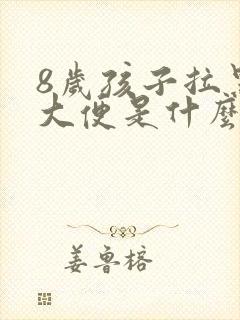 8歲孩子拉
大便是什麼
姜魯榕